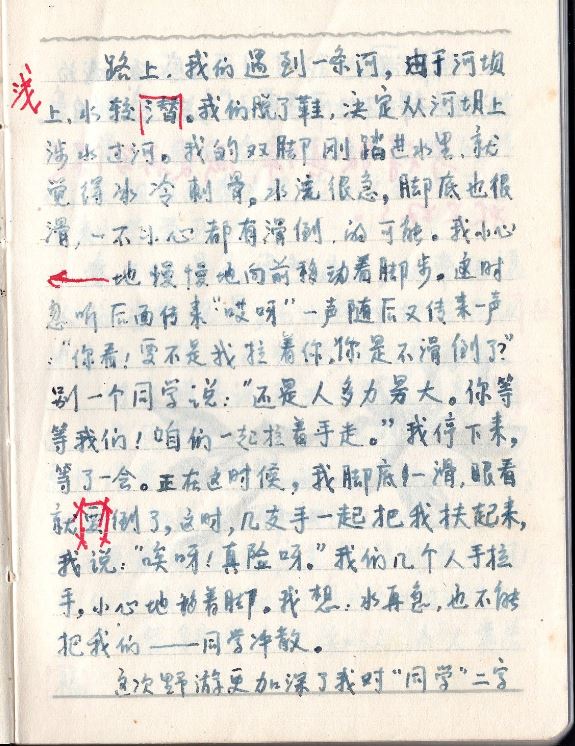 路上，我们遇到一条河，由于河坝
浅
上，水较潜。我们脱了鞋，决定从河坝上
涉水过河。我的双脚刚踏进水里，就
觉得冰冷刺骨。水流很急，脚底也很
滑，一不小心都有滑倒的可能。我小心
地慢慢地向前移动着脚步。这时
忽听后面传来“哎呀”一声随后又传来一声
：“你看！要不是我拉着你，你是不滑倒了？”
别一个同学说：“还是人多力量大。你等
等我们！咱们一起拉着手走。”我停下来，
等了一会。正在这时候，我脚底一滑，眼看
就要倒了，这时，几支手一起把我扶起来，
我说：“唉呀！真险呀。”我们几个人手拉
手，小心地移着脚。我想：水再急，也不能
把我们——同学冲散。
这次野游更加深了我对“同学”二字